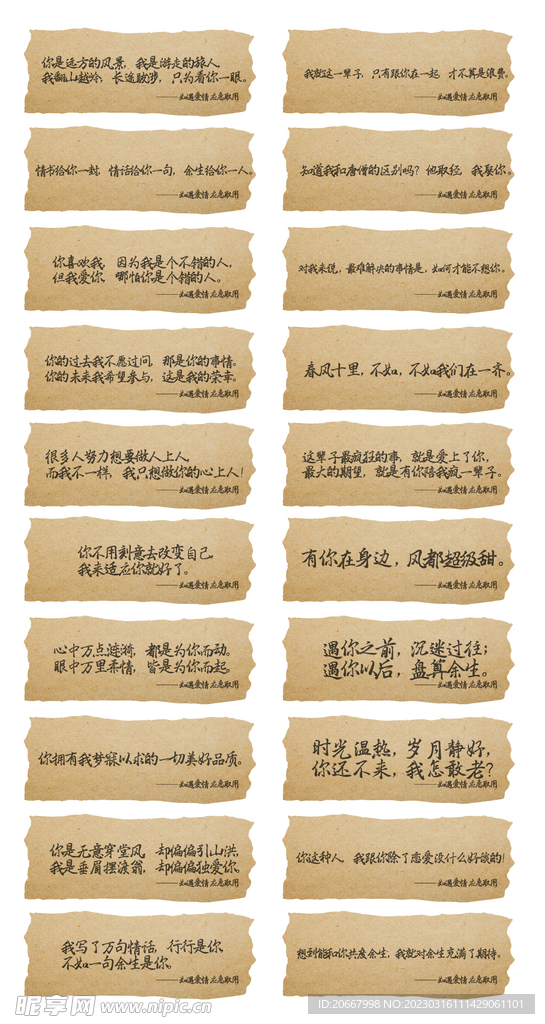 你是远方的风景，我是游走的旅人
我翻山越岭，长途跋涉，只为看你一眼。
——如遇爱情 左意取用
我就这一辈子，只有跟你在一起，才不算是浪费。
——如遇爱情 左意取用
情书给你一封，情话给你一句，余生给你一人。
——如遇爱情 左意取用
知道我和唐僧的区别吗？他取经，我娶你。
——如遇爱情 左意取用
你喜欢我，因为我是个不错的人，
但我爱你，哪怕你是个错的人。
——如遇爱情 左意取用
对我来说，最难解决的事情是，如何才能不想你。
——如遇爱情 左意取用
你的过去我不愿过问，那是你的事情。
你的未来我希望参与，这是我的荣幸。
——如遇爱情 左意取用
春风十里，不如，不如我们在一齐。
——如遇爱情 左意取用
很多人努力想要做人上人，
而我不一样，我只想做你的心上人！
——如遇爱情 左意取用
这辈子最疯狂的事，就是爱上了你，
最大的期望，就是有你陪我疯一辈子。
——如遇爱情 左意取用
你不用刻意去改变自己
我来适应你就好了。
——如遇爱情 左意取用
有你在身边，风都超级甜。
——如遇爱情 左意取用
心中万点涟漪，都是为你而动。
眼中万里柔情，皆是为你而起
——如遇爱情 左意取用
遇你之前，沉迷过往；
遇你以后，盘算余生。
——如遇爱情 左意取用
你拥有我梦寐以求的一切美好品质。
——如遇爱情 左意取用
时光温热，岁月静好，
你还不来，我怎敢老？
——如遇爱情 左意取用
你是无意穿堂风，却偏偏引山洪，
我是垂眉摆渡翁，却偏偏独爱你
——如遇爱情 左意取用
你这种人，我跟你除了恋爱没什么好谈的！
——如遇爱情 左意取用
我写了万句情话，行行是你
不如一句余生是你。
——如遇爱情 左意取用
想到能和你共度余生，我就对余生充满了期待。
——如遇爱情 左意取用
昵享网 www.nipic.cn
ID:20667998 NO:20230316111429061101